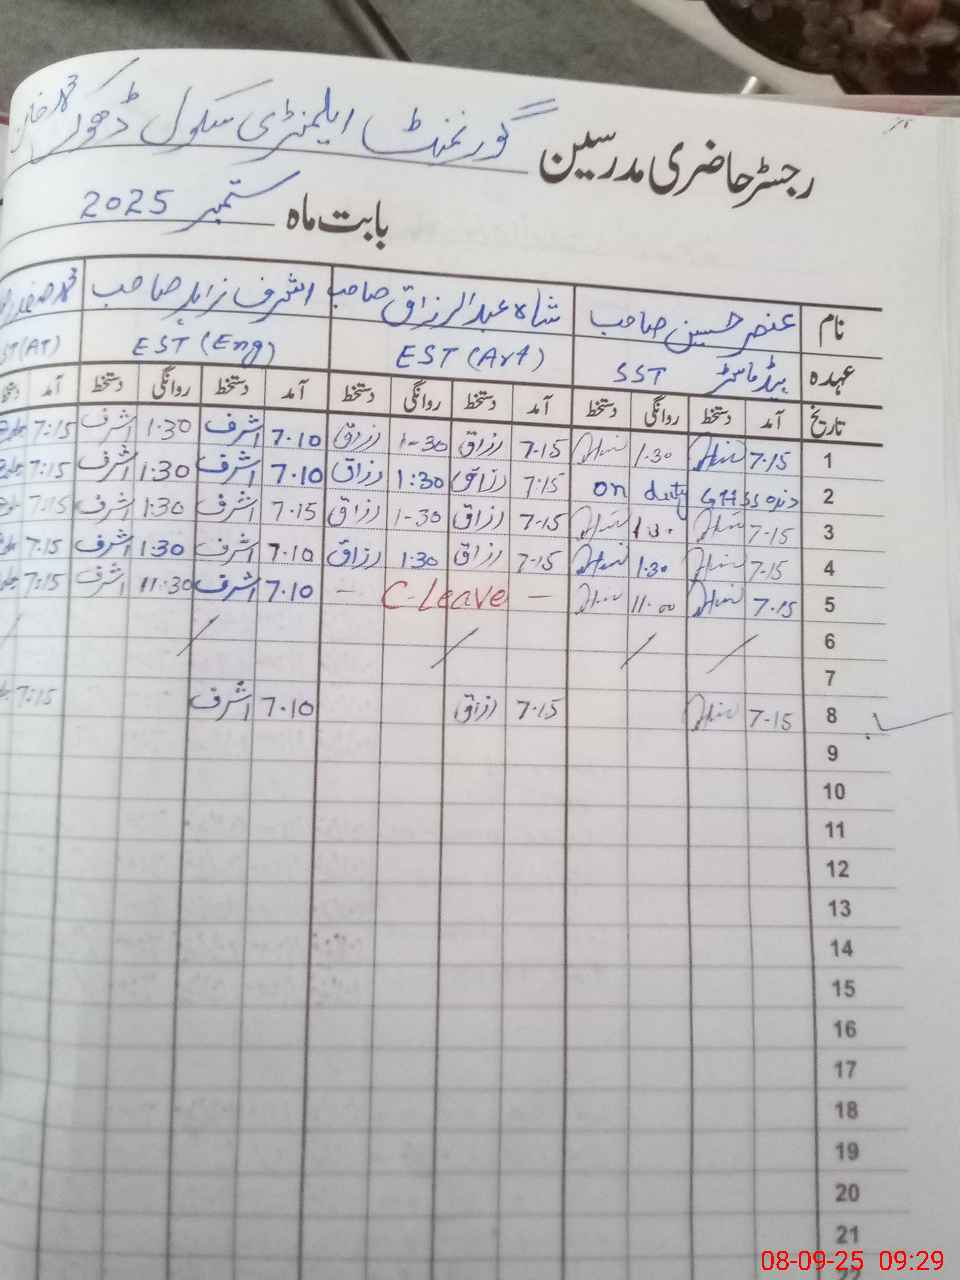 رجسٹر حاضری مدرسین گورنمنٹ ایلیمنٹری سکول ڈھوک
بابت ماہ ستمبر 2025
نام عنصر حسین صاحب شاہ عبدالرزاق صاحب اشرف زاہد صاحب
عہدہ ہیڈ ماسٹر SST EST (Art) EST (Eng) (AT)
تاریخ آمد دستخط روانگی دستخط آمد دستخط روانگی دستخط آمد دستخط روانگی دستخط آمد دستخط
1 7-15 1.30 7-15 رزاق 1-30 رزاق 7.10 اشرف 1.30 اشرف 7:15
2 GHSS on duty 7:15 رزاق 1:30 رزاق 7.10 اشرف 1:30 اشرف 7:15
3 7-15 1.30 7-15 رزاق 1-30 رزاق 7.15 اشرف 1:30 اشرف 7:15
4 7-15 1.30 7-15 رزاق 1:30 رزاق 7.10 اشرف 1:30 اشرف 7:15
5 7-15 11.00 — C-Leave — 7.10 اشرف 11:30 اشرف 7:15
6
7
8 7-15 7.15 رزاق 7.10 اشرف 7:15
9
10
11
12
13
14
15
16
17
18
19
20
21
22
08-09-25 09:29